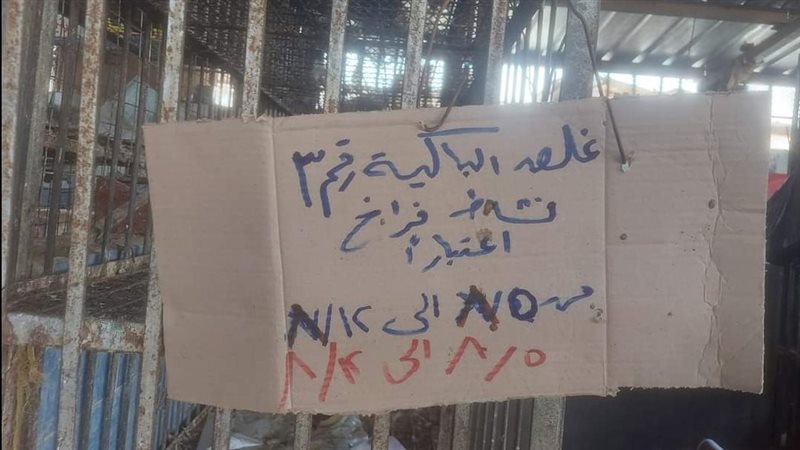 غلق الباكية رقم ٣
نشاط فراخ
اعتبارًا
من ٨/٥ الى ٨/١٢
٨/٥ الى